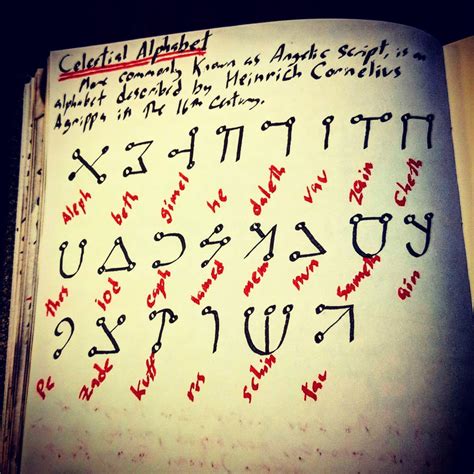 Celestial Alphabet
More commonly known as Angelic Script, is an
alphabet described by Heinrich Cornelius
Agrippa in the 16th Century.
Aleph beth gimel he daleth vau zain Cheth
thes iod caph lamed mem nun samech ain
Pe zade kuff res schin tau